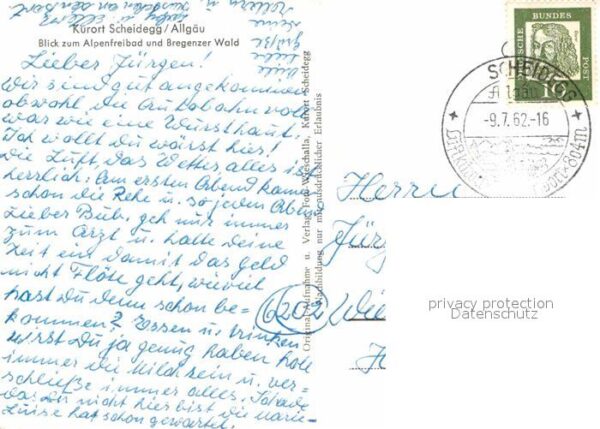 Kürort Scheidegg/Allgäu
Blick zum Alpenfreibad und Bregenzer Wald
Lieber Jürgen!
Wir sind gut angekommen
obwohl die Autobahn voll
war wie eine Wursthaut.
Ich wollt du wärst hier!
Die Luft, das Wetter alles ist
herrlich. Am ersten Abend kamen
schon die Rehe u. so jeden Abend
Lieber Bub, geh nur immer
zum Arzt u. halte deine
Zeit ein damit das geld
nicht Flöte geht, wieviel
hast du denn schon be-
kommen? Essen u. trinken
wirst du ja genug haben hole
immer die Milch rein u. ver-
schließe immer alles. Schade
das du nicht hier bist die Marie-
Luise hat schon gewartet.
Original-Aufnahme u. Verlag Foto Kurort Scheidegg
Nachbildung nur mit ausdrücklicher Erlaubnis
DEUTSCHE
BUNDES
POST
10
SCHEIDEGG
Allgäu
-9.7.62-16
Herrn
Jür
6202 Wie
privacy protection
Datenschutz